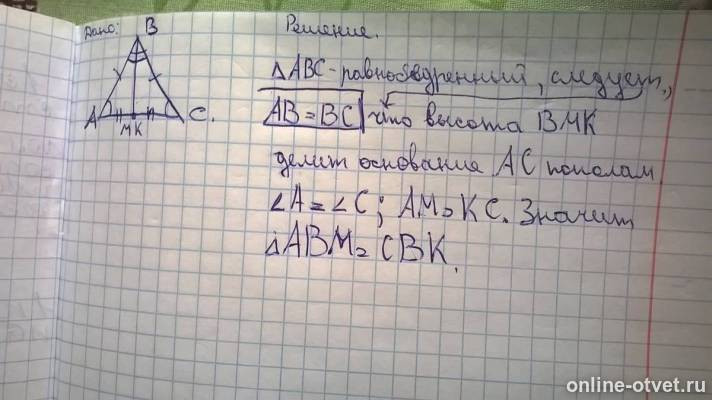 Дано:
B
A
C.
MK
Решение.
△ABC - равнобедренний, следует,
AB = BC что высота BMK
делит основание AC пополам
∠A = ∠C; AM = KC. Значит
△ABM = CBK.
online-otvet.ru